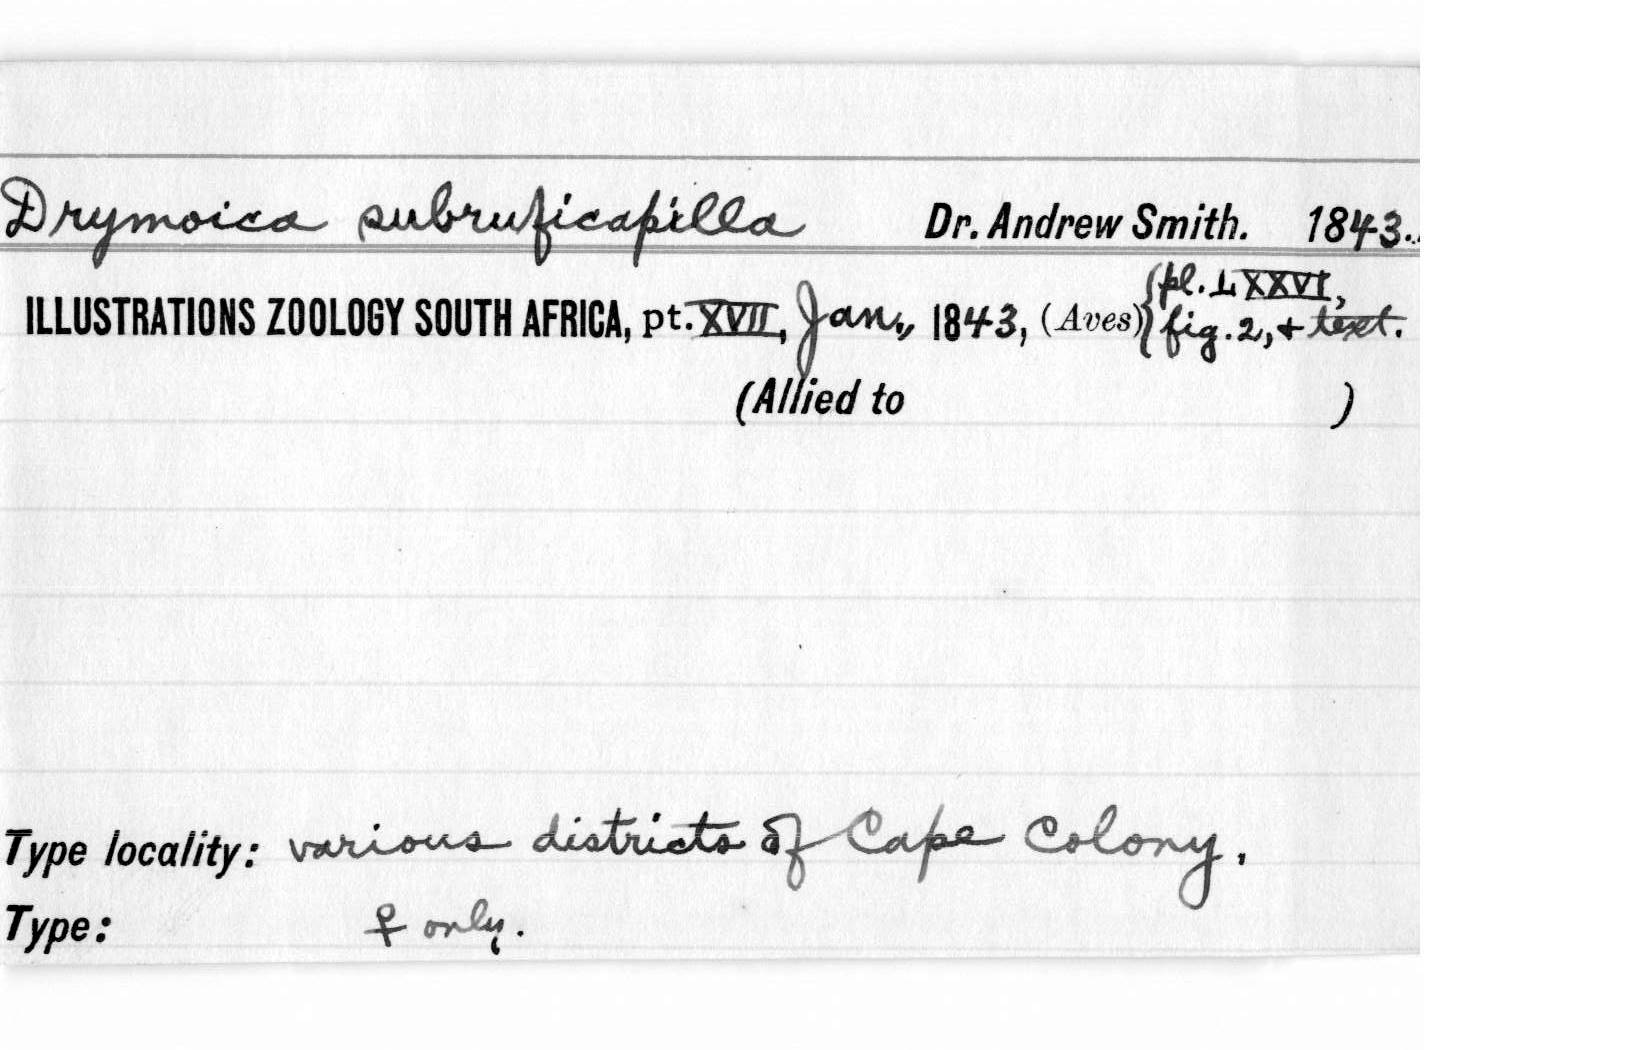 Drymoica subruficapilla Dr. Andrew Smith. 1843.
ILLUSTRATIONS ZOOLOGY SOUTH AFRICA, pt. XVII, Jan., 1843, (Aves) {pl. LXXVI,
fig. 2, + text.
(Allied to )
Type locality: various districts of Cape Colony.
Type: ♀ only.